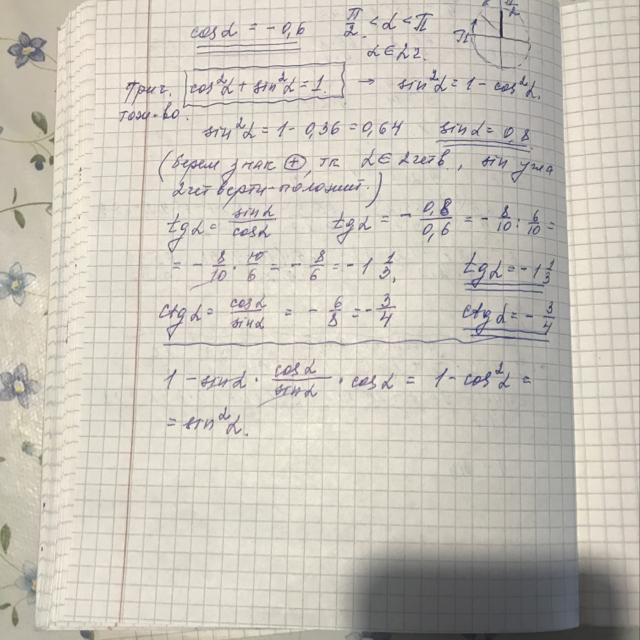 cosα = -0,6 π/2 < α < π
α ∈ 2ч.
π π/2
Триг. тож-во. cos²α + sin²α = 1. → sin²α = 1 - cos²α.
sin²α = 1 - 0,36 = 0,64 sinα = 0,8
(берем знак ⊕, тк α ∈ 2четв, sin угла
2четверти - положит.)
tgα = sinα/cosα tgα = - 0,8/0,6 = - 8/10 : 6/10 =
= - 8/10 · 10/6 = - 8/6 = -1 1/3, tgα = -1 1/3
ctgα = cosα/sinα = - 6/8 = - 3/4 ctgα = - 3/4
1 - sinα · cosα/sinα · cosα = 1 - cos²α =
= sin²α.